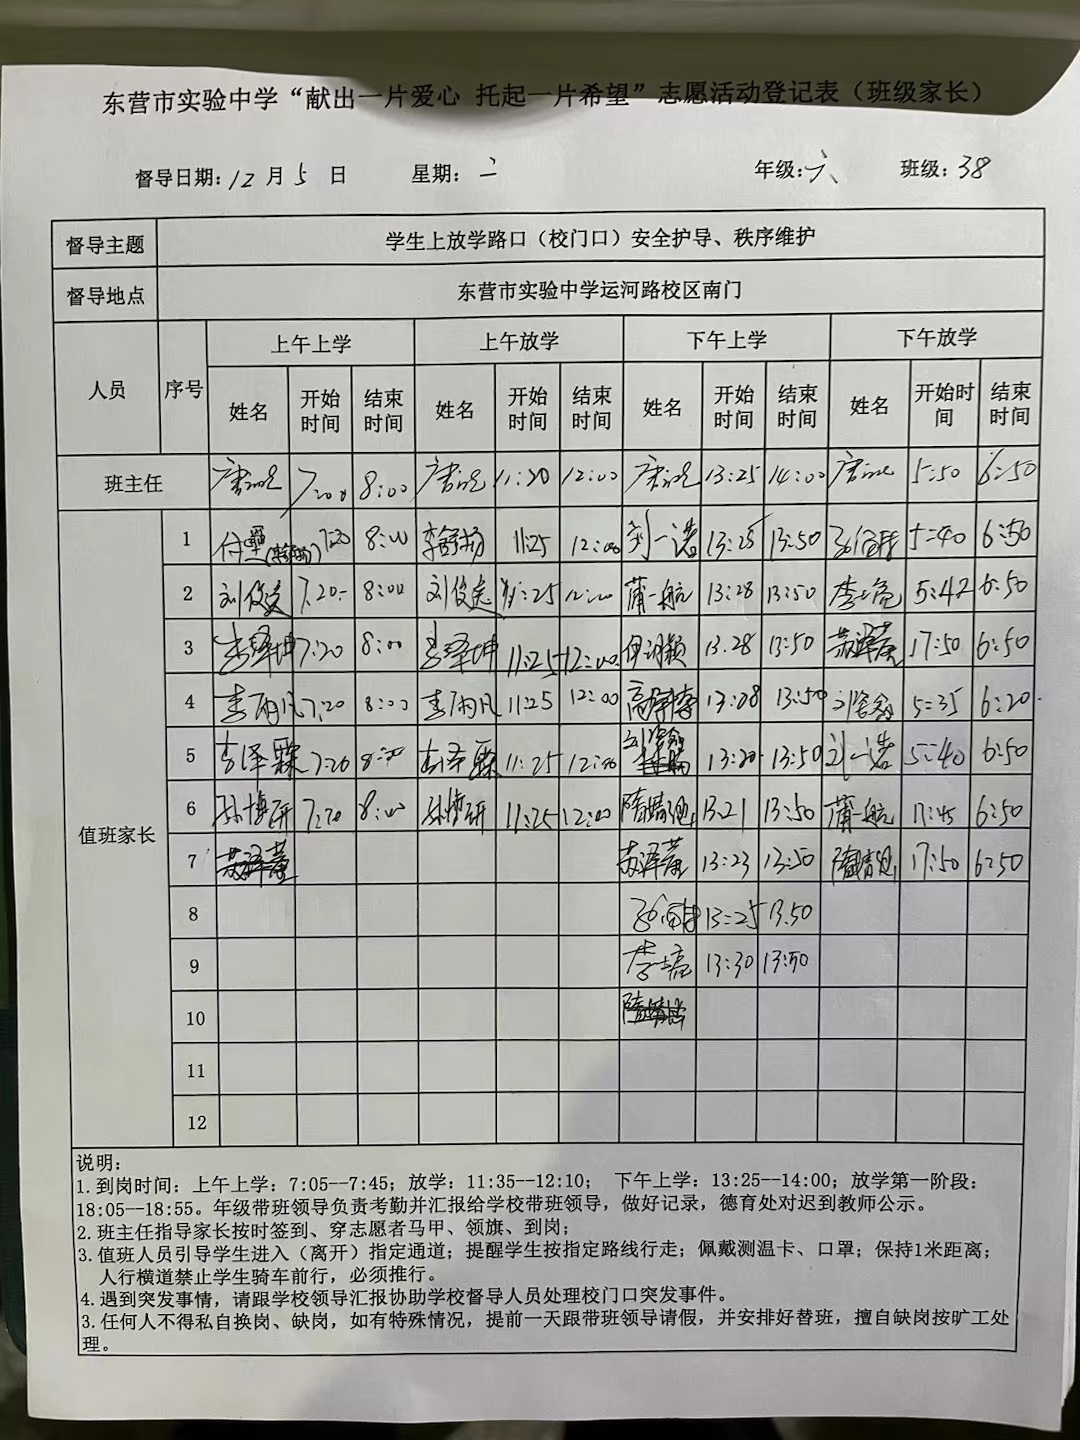 东营市实验中学“献出一片爱心 托起一片希望”志愿活动登记表（班级家长）
督导日期：12月5日 星期：二 年级：六 班级：38
督导主题 学生上放学路口（校门口）安全护导、秩序维护
督导地点 东营市实验中学运河路校区南门
人员 序号 上午上学 上午放学 下午上学 下午放学
姓名 开始时间 结束时间 姓名 开始时间 结束时间 姓名 开始时间 结束时间 姓名 开始时间 结束时间
班主任 7:20 8:00 11:20 12:00 13:25 14:00 5:50 6:50
值班家长
1 7:20 8:00 11:25 12:00 刘一诺 13:25 13:50 5:40 6:50
2 刘俊 7.20 8:00 刘俊 11:25 12:00 蒲一航 13:28 13:50 李士亮 5:42 6:50
3 李泽坤 7:20 8:00 李泽坤 11:25 12:00 13.28 13:50 17:50 6:50
4 李雨凡 7.20 8:00 李雨凡 11:25 12:00 13:28 13:50 5:35 6:20
5 李泽霖 7:20 8:00 李泽霖 11:25 12:00 13:20 13:50 刘一诺 5:40 6:50
6 孙博研 7:20 8:00 孙博研 11:25 12:00 13:21 13:50 蒲一航 17:45 6:50
7 13:23 13:50 17:50 6:50
8 13:25 13.50
9 李士亮 13:30 13:50
10
11
12
说明：
1.到岗时间：上午上学：7:05--7:45；放学：11:35--12:10； 下午上学：13:25--14:00；放学第一阶段：
18:05--18:55。年级带班领导负责考勤并汇报给学校带班领导，做好记录，德育处对迟到教师公示。
2.班主任指导家长按时签到、穿志愿者马甲、领旗、到岗；
3.值班人员引导学生进入（离开）指定通道；提醒学生按指定路线行走；佩戴测温卡、口罩；保持1米距离；
人行横道禁止学生骑车前行，必须推行。
4.遇到突发事情，请跟学校领导汇报协助学校督导人员处理校门口突发事件。
3.任何人不得私自换岗、缺岗，如有特殊情况，提前一天跟带班领导请假，并安排好替班，擅自缺岗按旷工处
理。